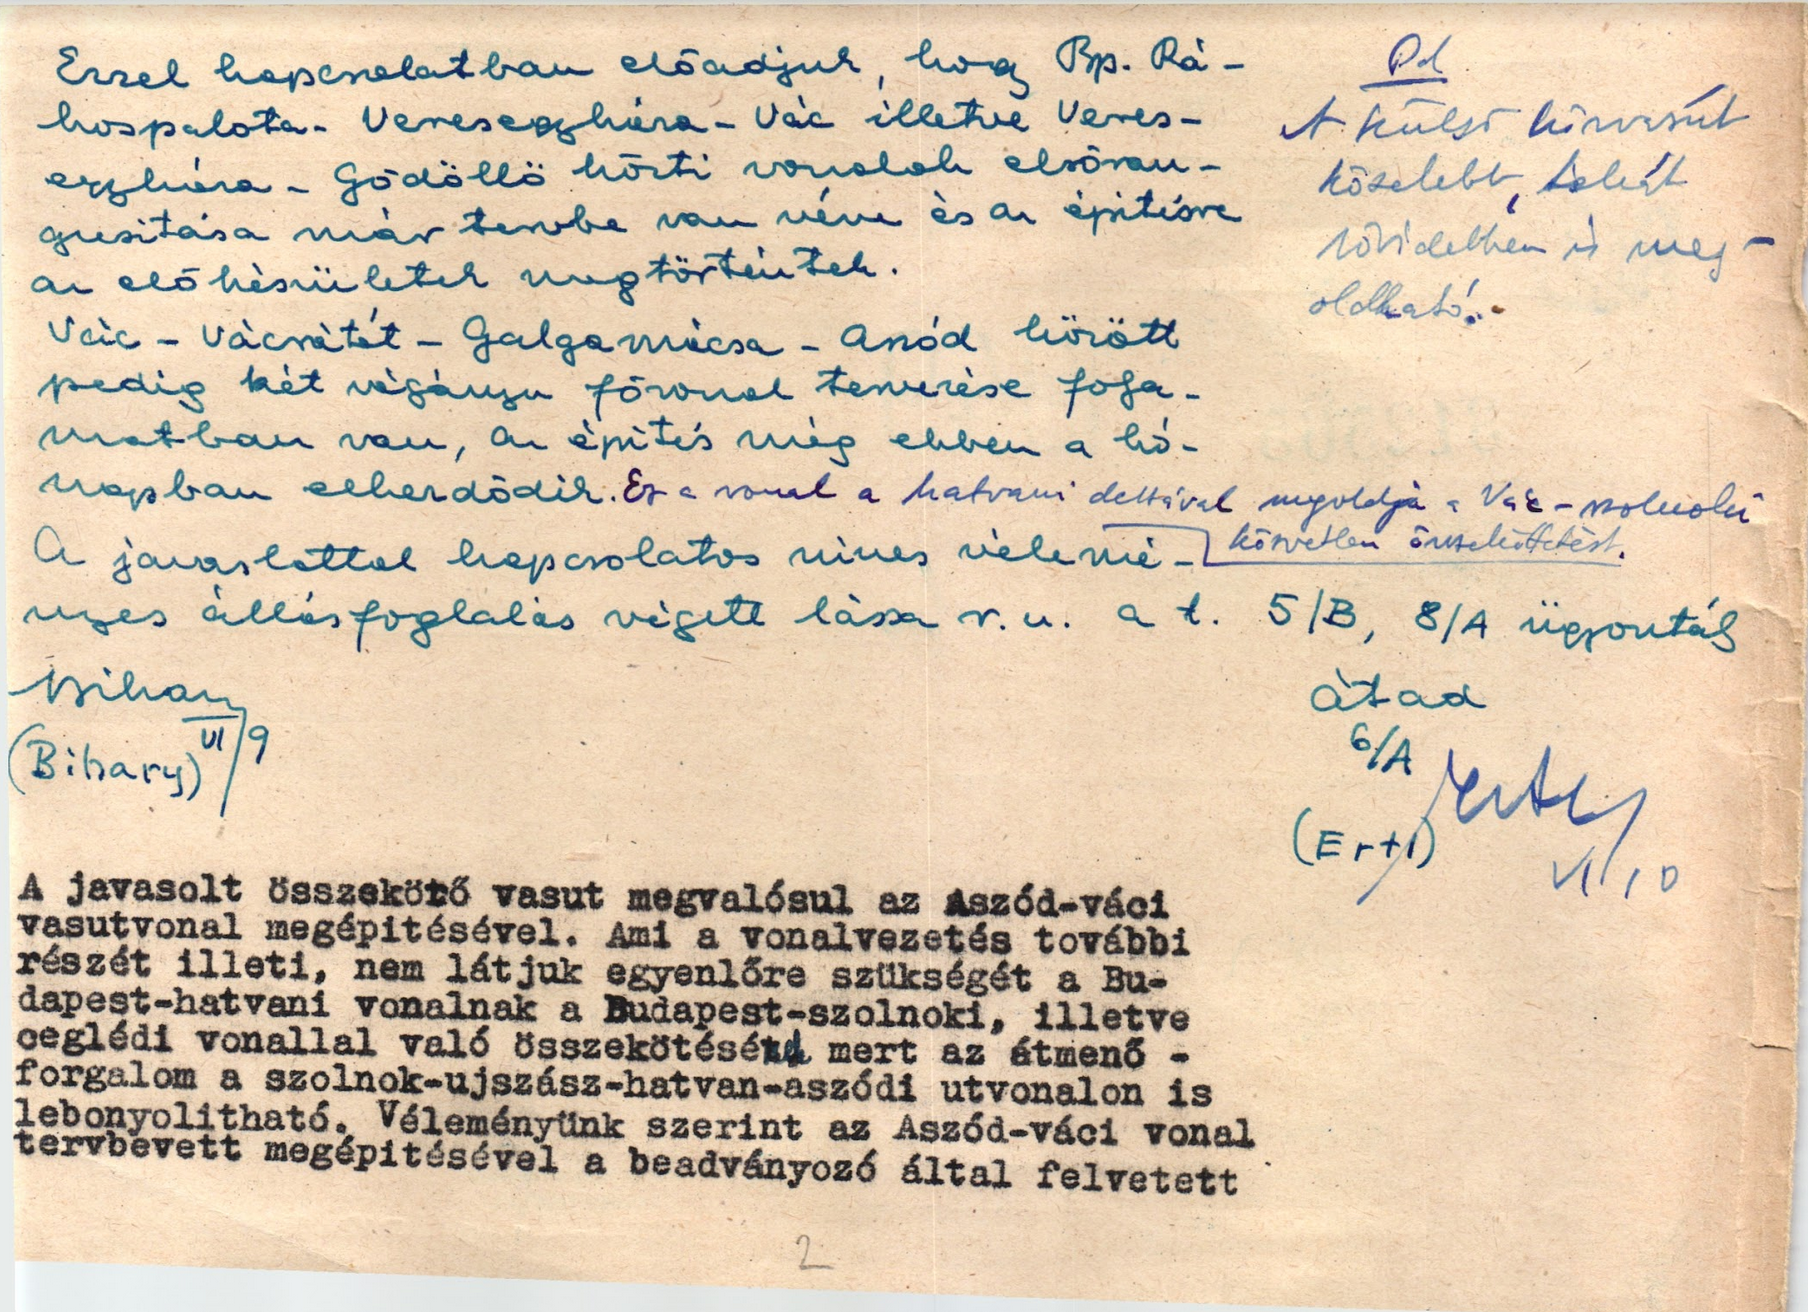 Ezzel kapcsolatban előadjuk, hogy Bp. Rá-
kospalota - Veresegyháza - Vác illetve Veres-
egyháza - Gödöllő közti vonalak elsőran-
gusitása már tervbe van véve és az épitésre
az előkészületek megtörténtek.
Vác - Vácrátót - Galgamácsa - Aszód között
pedig két vágányu fővonal tervezése folya-
matban van, az épités még ebben a hó-
napban elkezdődik. Ez a vonal a hatvani deltával megoldja a Vác - szolnoki
közvetlen összeköttetést.
A javaslattal kapcsolatos nincs vélemé-
nyes állásfoglalás végett lássa v. u. a t. 5/B, 8/A ügyosztály
Pd
A külső körvasút
közelebb, tehát
rövidebben is meg-
oldható.
Bihary
VI/9
(Bihary)
átad
6/A
(Ertl)
VI/10
A javasolt összekötő vasut megvalósul az Aszód-váci
vasutvonal megépitésével. Ami a vonalvezetés további
részét illeti, nem látjuk egyenlőre szükségét a Bu-
dapest-hatvani vonalnak a Budapest-szolnoki, illetve
ceglédi vonallal való összekötését mert az átmenő -
forgalom a szolnok-ujszász-hatvan-aszódi utvonalon is
lebonyolitható. Véleményünk szerint az Aszód-váci vonal
tervbevett megépitésével a beadványozó által felvetett
2